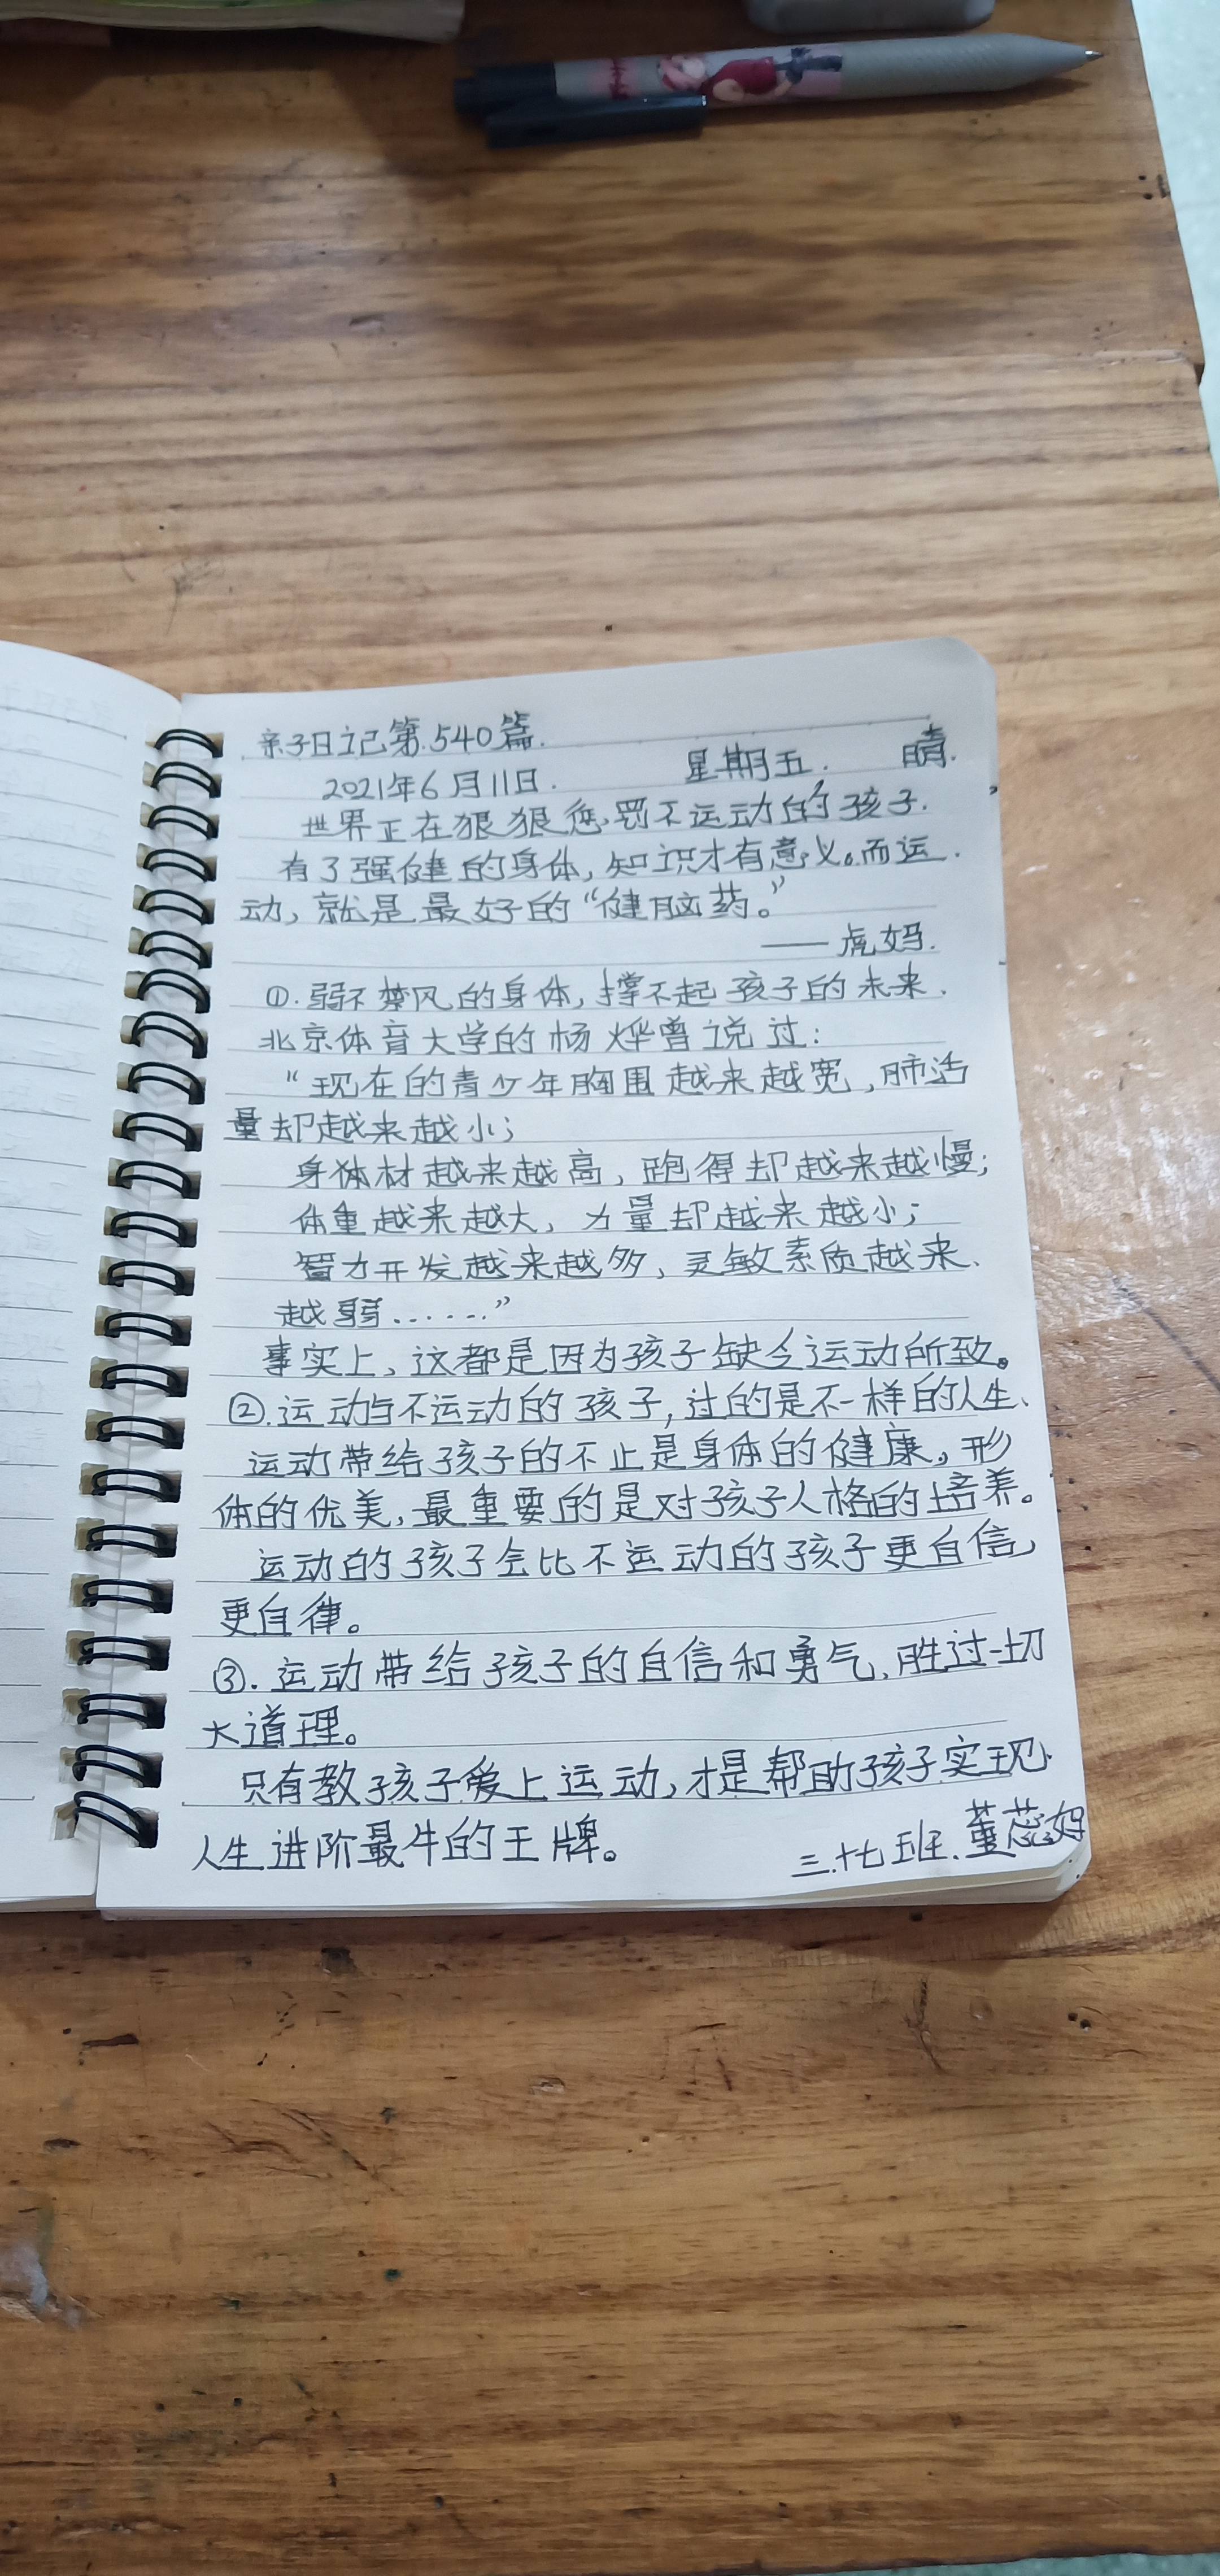 亲子日记第.540篇.
2021年6月11日. 星期五. 晴.
世界正在狠狠惩罚不运动的孩子.
有了强健的身体,知识才有意义。而运.
动,就是最好的“健脑药。”
——虎妈.
①.弱不禁风的身体,撑不起孩子的未来.
北京体育大学的杨烨曾说过:
“现在的青少年胸围越来越宽,肺活
量却越来越小;
身体材越来越高,跑得却越来越慢;
体重越来越大,力量却越来越小;
智力开发越来越多,灵敏素质越来、
越弱......”
事实上,这都是因为孩子缺乏运动所致。
②.运动与不运动的孩子,过的是不一样的人生、
运动带给孩子的不止是身体的健康,形
体的优美,最重要的是对孩子人格的培养。
运动的孩子会比不运动的孩子更自信,
更自律。
③.运动带给孩子的自信和勇气,胜过一切
大道理。
只有教孩子爱上运动,才是帮助孩子实现.
人生进阶最牛的王牌。
三.十七班.董蕊妈